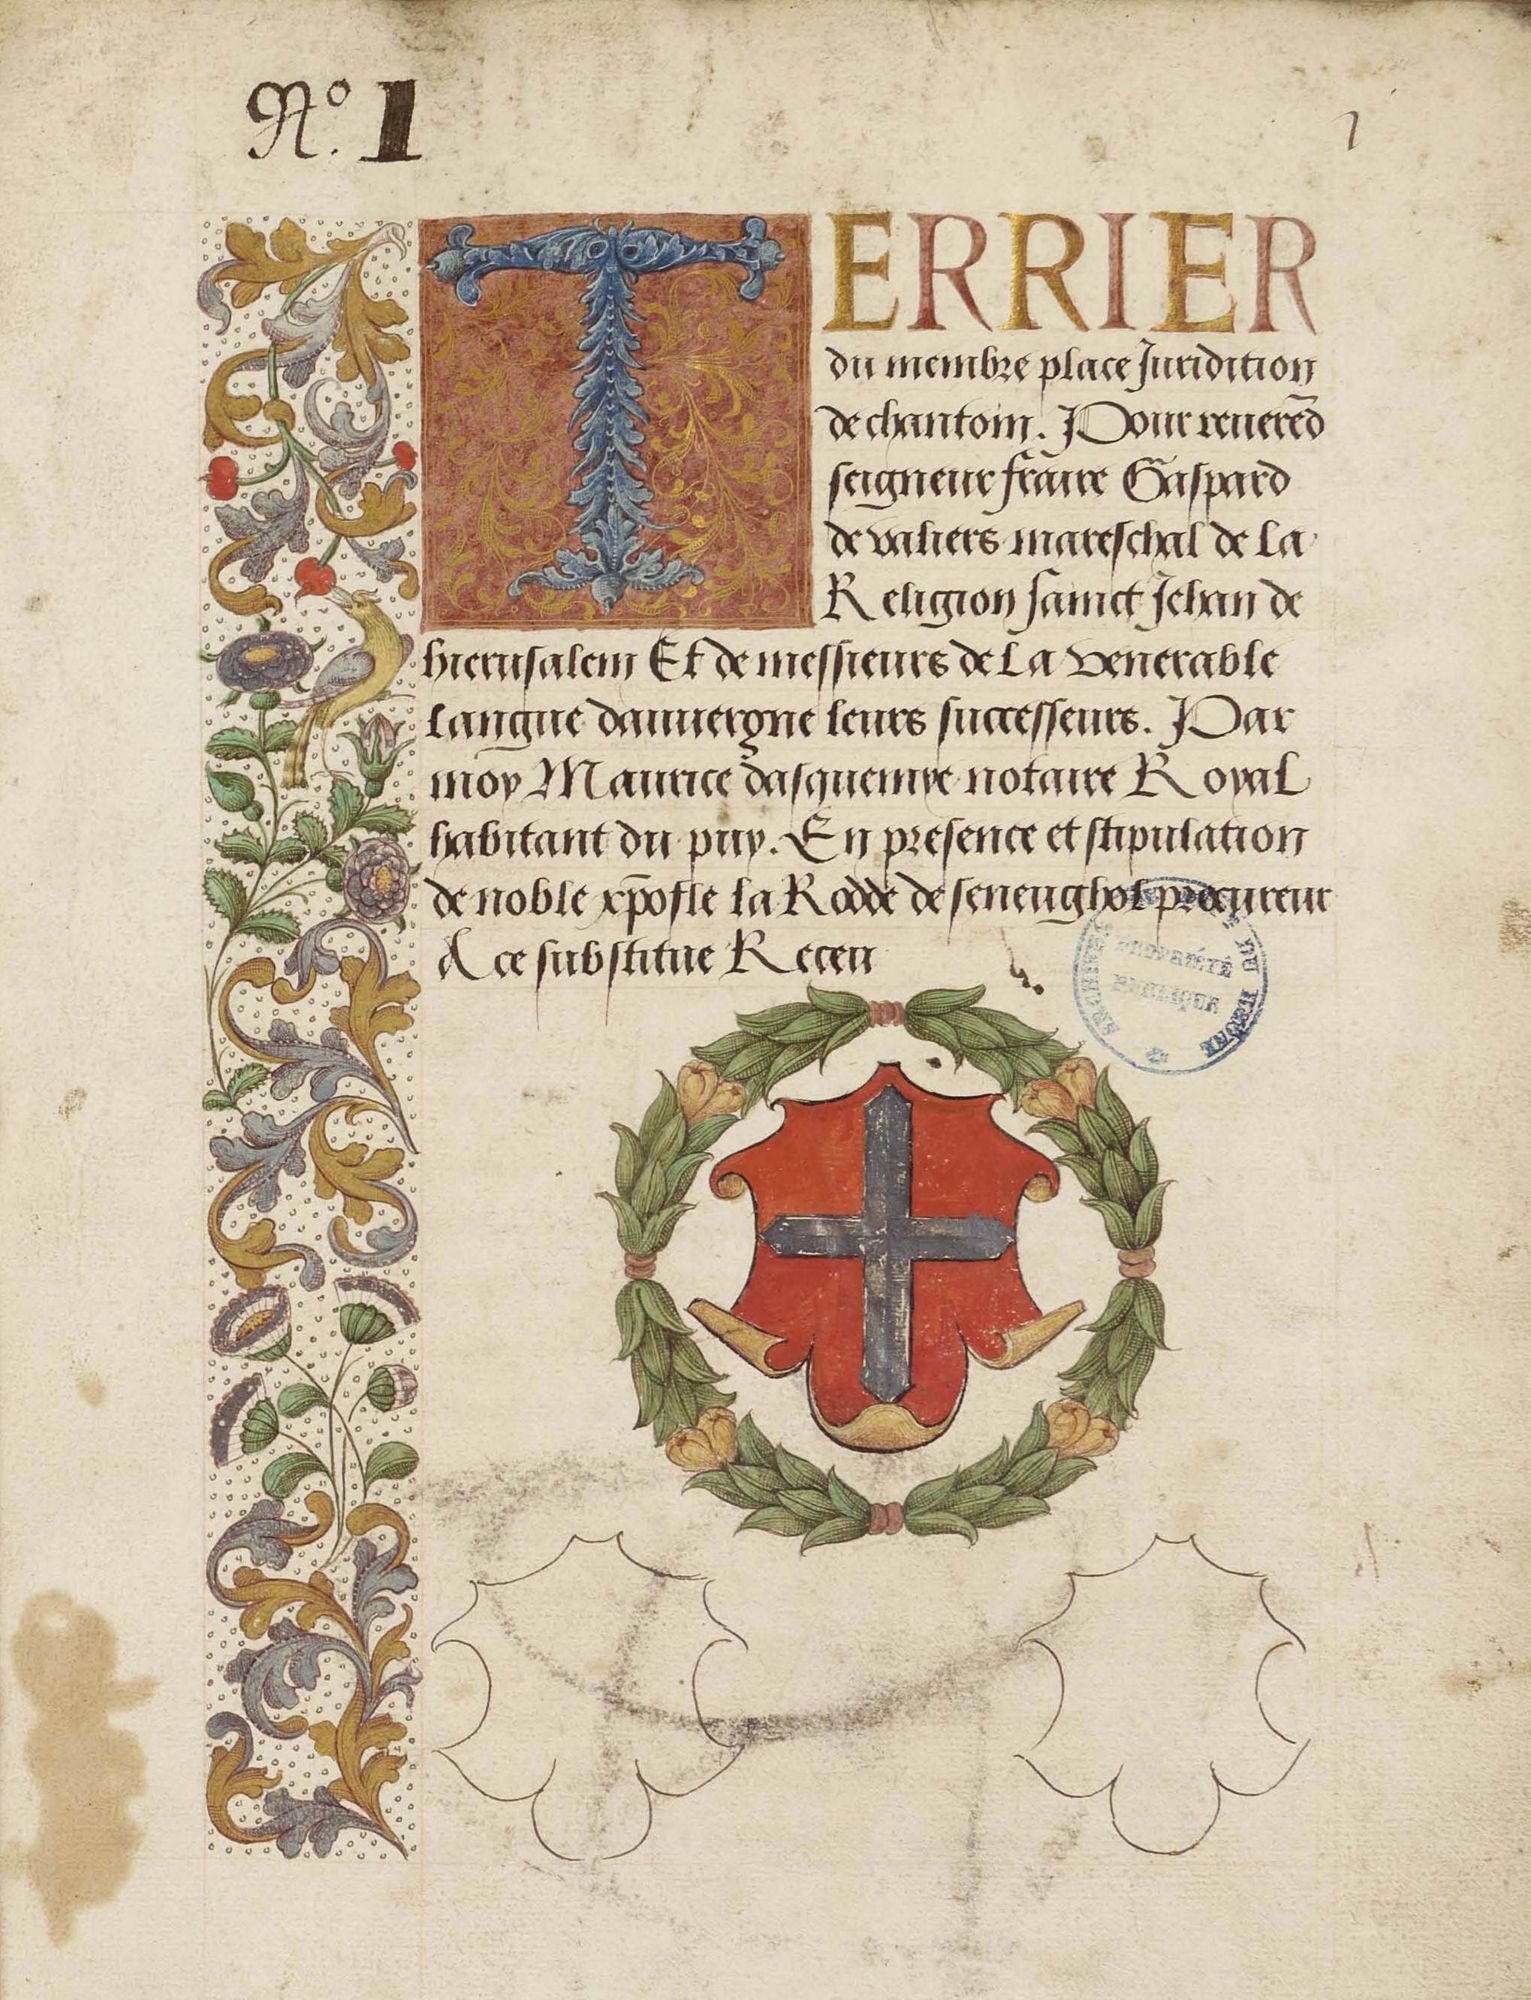 No. 1
1
TERRIER
du membre place Juridition
de chantoin. Pour reuerēd
seigneur fraire Gaspard
de valiers mareschal de La
Religion sainct Jehan de
hierusalem Et de messieurs de La venerable
Langue dauuergne leurs successeurs. Par
moy Maurice dasquemye notaire Royal
habitant du puy. En presence et stipulation
de noble xp̄ofle la Rodde de seneughol procureur
A ce substitue Receu
ARCHIVES DU RHÔNE
PROPRIÉTÉ
PUBLIQUE